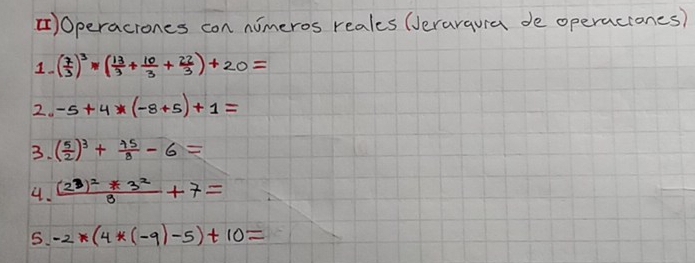 II) Operaciones con números reales (Jerarquia de operaciones)
1.- (7/3)³ * (13/3 + 10/3 + 22/3) + 20 =
2. -5 + 4 * (-8+5) + 1 =
3. (5/2)³ + 75/8 - 6 =
4. (2³)² * 3² / 8 + 7 =
5. -2 * (4 * (-9) - 5) + 10 =